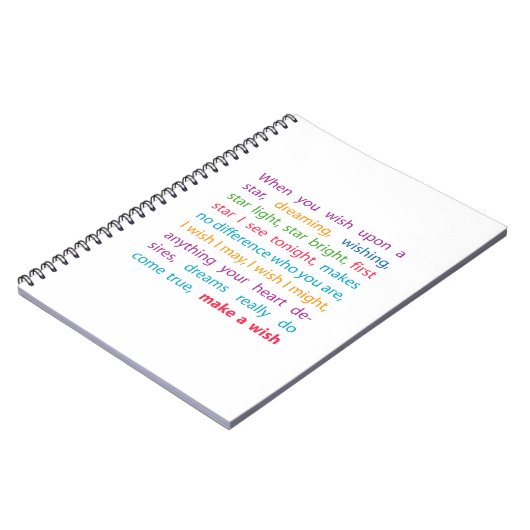 When you wish upon a
star, dreaming, wishing.
star light, star bright, first
star I see tonight, makes
no difference who you are,
I wish I may, I wish I might,
anything your heart de-
sires, dreams really do
come true, make a wish